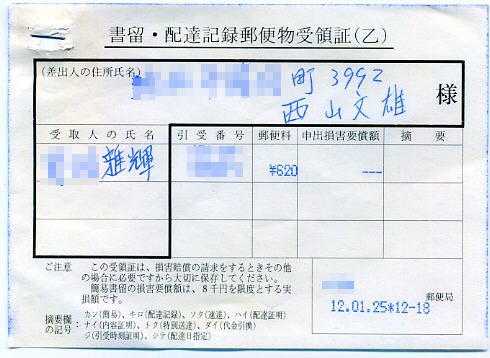 書留・配達記録郵便物受領証(乙)
(差出人の住所氏名)
町 3992
西山文雄
様
受取人の氏名 引受番号 郵便料 申出損害要償額 摘要
雅輝 ¥620 ---
ご注意 この受領証は、損害賠償の請求をするときその他
の場合に必要ですから大切に保存してください。
簡易書留の損害要償額は、8千円を限度とする実
損額です。
摘要欄の記号
カン(簡易)、キロ(配達記録)、ソク(速達)、ハイ(配達証明)
ナイ(内容証明)、トク(特別送達)、ダイ(代金引換)
ジ(引受時刻証明)、クテ(配達日指定)
郵便局
12.01.25*12-18